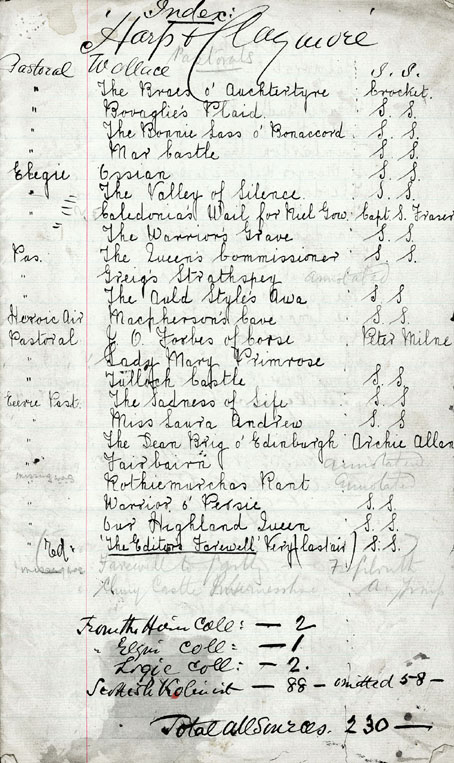 Index:
'Harp & Claymore'
Pastorals
Pastoral Wallace S. S.
" The Braes o' Auchtertyre Crocket.
" Bovaglie's Plaid. S. S.
" The Bonnie Lass o' Bonaccord. S. S.
" Mar Castle S. S.
Elegie Ossian S. S.
" The Valley of Silence. S. S.
" Caledonia's Wail for Niel Gow. Capt. S. Fraser
" The Warrior's Grave S. S.
Pas. The Queen's Commissioner S. S.
" Greig's Strathspey annotated
" The Auld Style's Awa S. S
Heroic Air Macpherson's Cave S. S.
Pastoral J. O. Forbes of Corse Peter Milne
" Lady Mary Primrose
" Tulloch Castle S. S
Eerie Past. The Sadness of Life S. S
" Miss Laura Andrew S. S
" The Dean Brig o' Edinburgh Archie Allan
" Fairbairn annotated
" Rothiemurchas Rant annotated
" Warrior o' Persie S. S
" Our Highland Queen S. S.
(Red: "The Editor's Farewell" Very (last air) S. S.
Farewell to
Cluny Castle
From the Hoim Coll: — 2
" Elgin Coll: — 1
Logie Coll: — 2.
Scottish Violinist — 88 — omitted 58 —
Total all Sources. 230 —